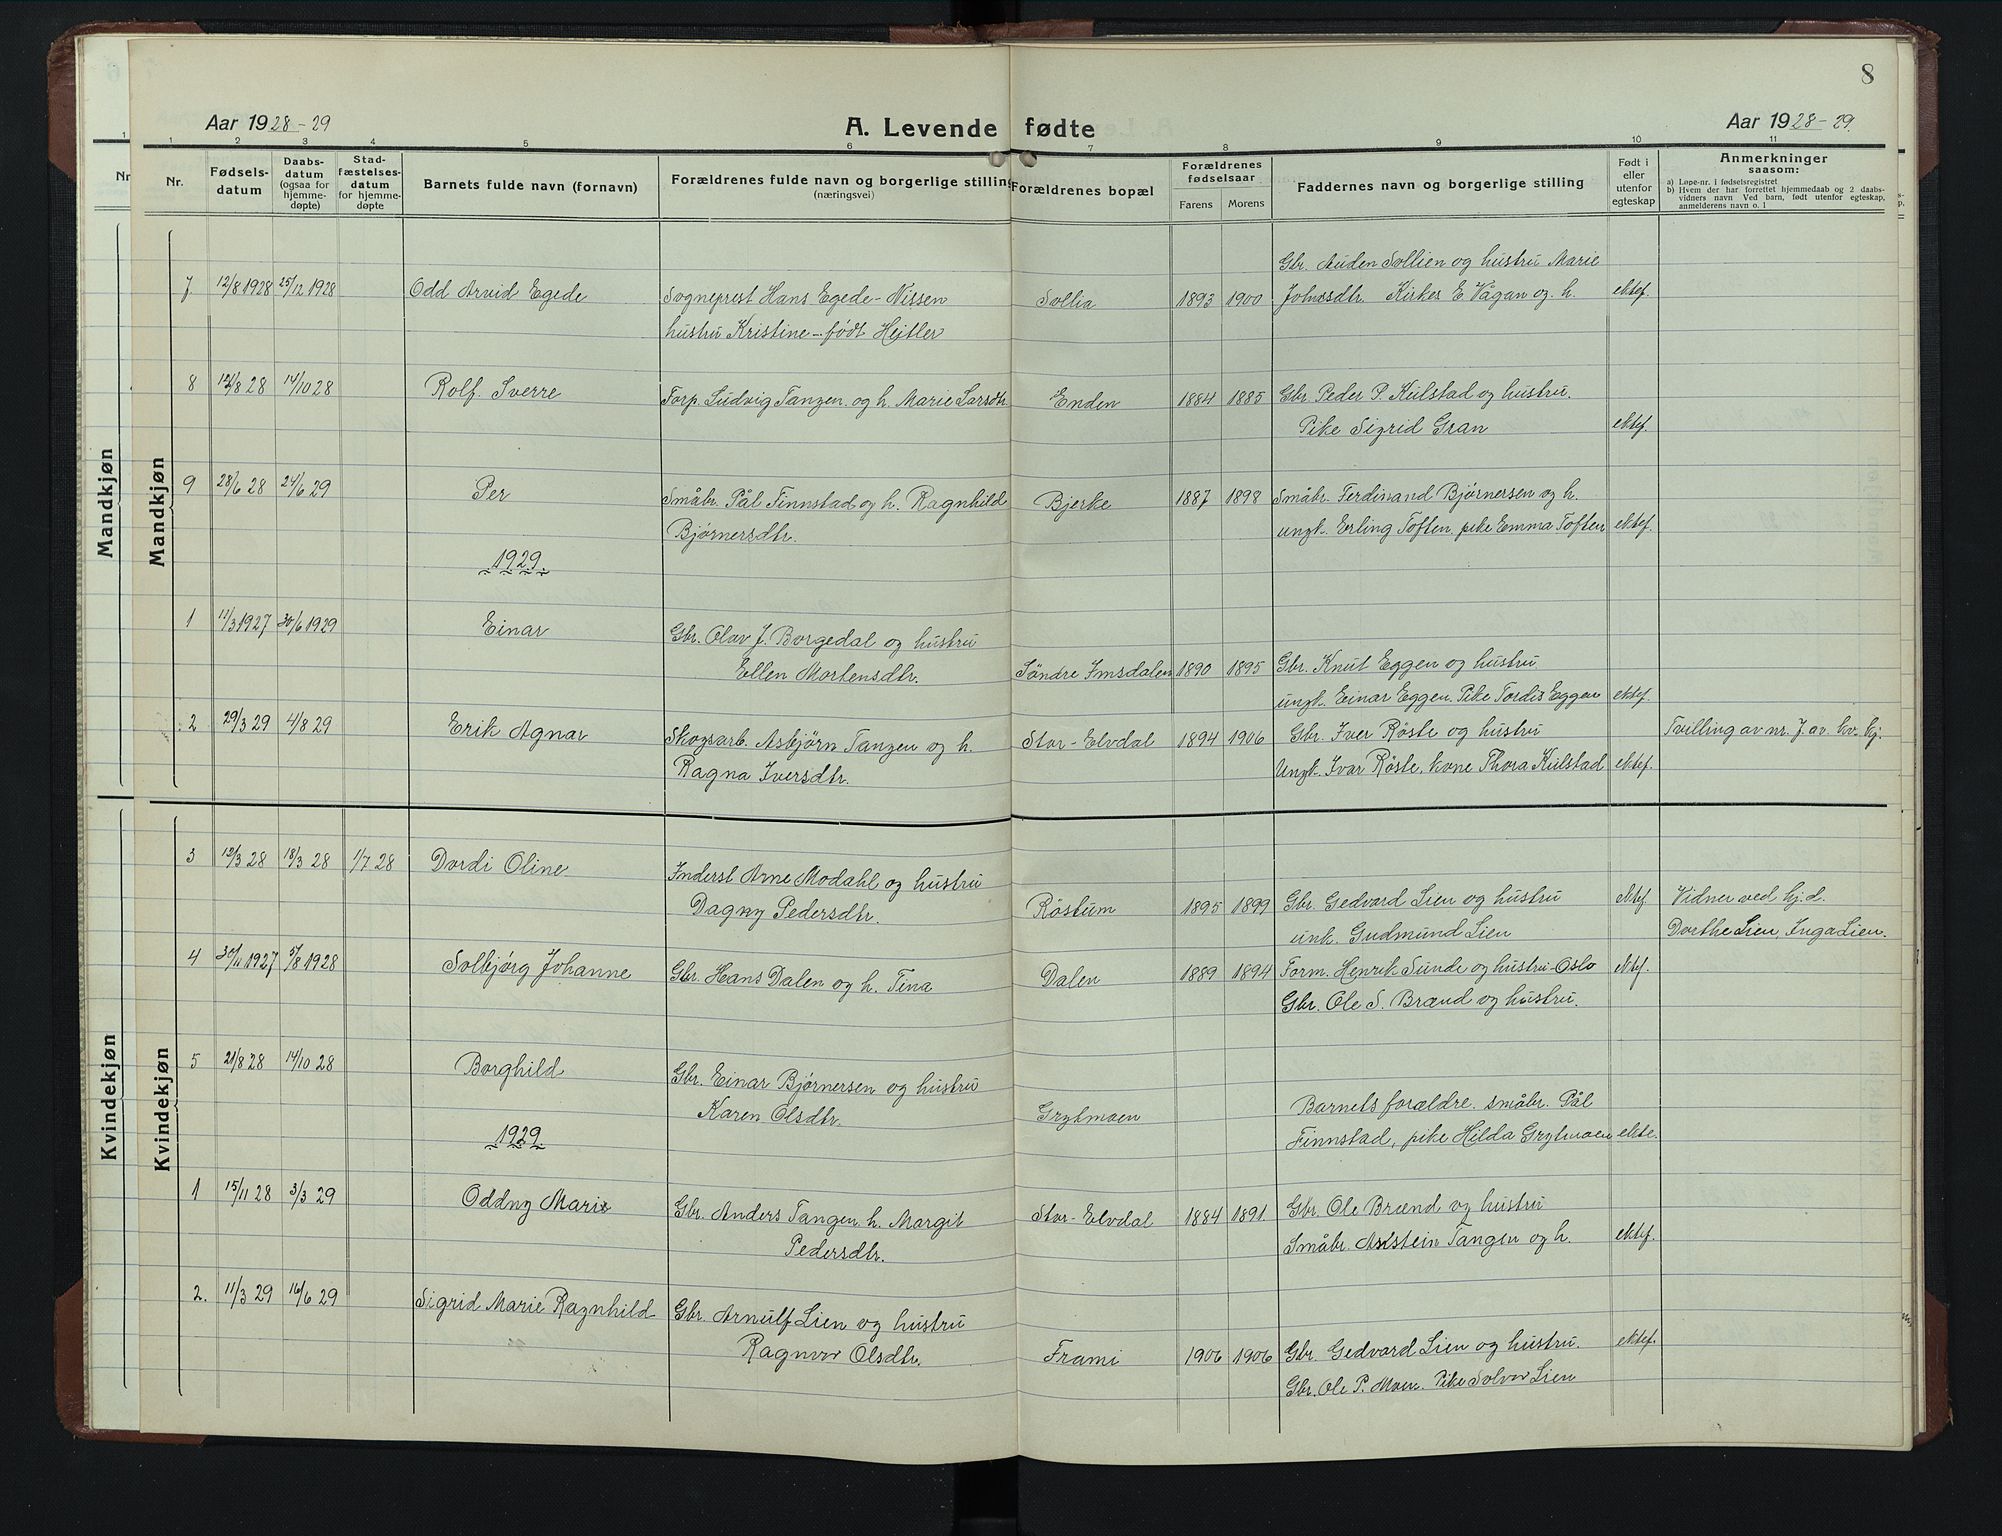 8
Aar 1928-29
A. Levende fødte
Aar 1928-29.
1 2 3 4 5 6 7 8 9 10 11
Nr.
Nr.
Fødsels-
datum
Daabs-
datum
(ogsaa for
hjemme-
døpte)
Stad-
fæstelses-
datum
for hjemme-
døpte
Barnets fulde navn (fornavn)
Forældrenes fulde navn og borgerlige stilling
(næringsvei)
Forældrenes bopæl
Forældrenes
fødselsaar
Farens Morens
Faddernes navn og borgerlige stilling
Født i
eller
utenfor
egteskap
Anmerkninger
saasom:
a) Løpe-nr. i fødselsregistret
b) Hvem der har forrettet hjemmedaab og 2 daabs-
vidners navn Ved barn, født utenfor egteskap,
anmelderens navn o. l
Mandkjøn
Mandkjøn
Gbr. Auden Sollien og hustru Marie
7 12/8 1928 25/12 1928 Odd Arvid Egede Sogneprest Hans Egede-Nissen Sollia 1893 1900 Johnsdtr. Kirkes. E. Vågan og. h. ektef.
hustru Kristine - født Hejtler
8 12/8 28 14/10 28 Rolf. Sverre Forp. Ludvig Tangen. og h. Marie Larsdtr Enden 1884 1885 Gbr. Peder P. Kulstad og hustru.
Pike Sigrid Gran ektef.
9 28/6 28 24/6 29 Per Småbr. Pål Finnstad og h. Ragnhild Bjerke 1887 1898 Småbr. Ferdinand Bjørnersen og h.
Bjørnersdtr. ungk. Erling Toften. pike Emma Toften ektef.
1929.
1 11/3 1927 30/6 1929 Einar Gbr. Olav J. Borgedal og hustru
Ellen Mortensdtr. Söndre Imsdalen 1890 1895 Gbr. Knut Eggen og hustru
ungk. Einar Eggen. Pike Tordis Eggen ektef.
2 29/3 29 4/8 29 Erik Agnar Skogsarb. Asbjörn Tangen og h. Stor-Elvdal 1894 1906 Gbr. Iver Röste og hustru Tvilling av nr. 7. av. kv. kj.
Ragna Iversdtr. Ungk. Ivar Röste, kone Thora Kulstad ektef.
Kvindekjøn
Kvindekjøn
3 12/3 28 18/3 28 1/7 28 Dordi Oline Inderst Arne Modahl og hustru
Dagny Pedersdtr. Röstum 1895 1899 Gbr. Gedvard Lien og hustru ektef Vidner ved hj. d.
unk. Gudmund Lien Dorthe Lien, Inga Lien.
4 30/11 1927 5/8 1928 Solbjørg Johanne Gbr. Hans Dalen og h. Tina Dalen 1889 1894 Form. Henrik Sunde og hustru - Oslo ektef.
Gbr. Ole S. Brænd og hustru.
5 21/8 28 14/10 28 Borghild Gbr. Einar Bjørnersen og hustru
Karen Olsdtr. Grytmoen Barnets forældre. småbr. Pål
Finnstad, pike Hilda Grytmoen ekte.
1929.
1 15/11 28 3/3 29 Oddny Marie Gbr. Anders Tangen h. Margit Stor-Elvdal 1884 1891. Gbr. Ole Brænd og hustru
Pedersdtr. Småbr. Aslstein Tangen og h. ektef.
2. 11/3 29 16/6 29 Sigrid Marie Ragnhild Gbr. Arnulf Lien og hustru
Ragnvor Olsdtr. Frami 1906 1906 Gbr. Gedvard Lien og hustru. ektef.
Gbr. Ole P. Moen. Pike Solvor Lien